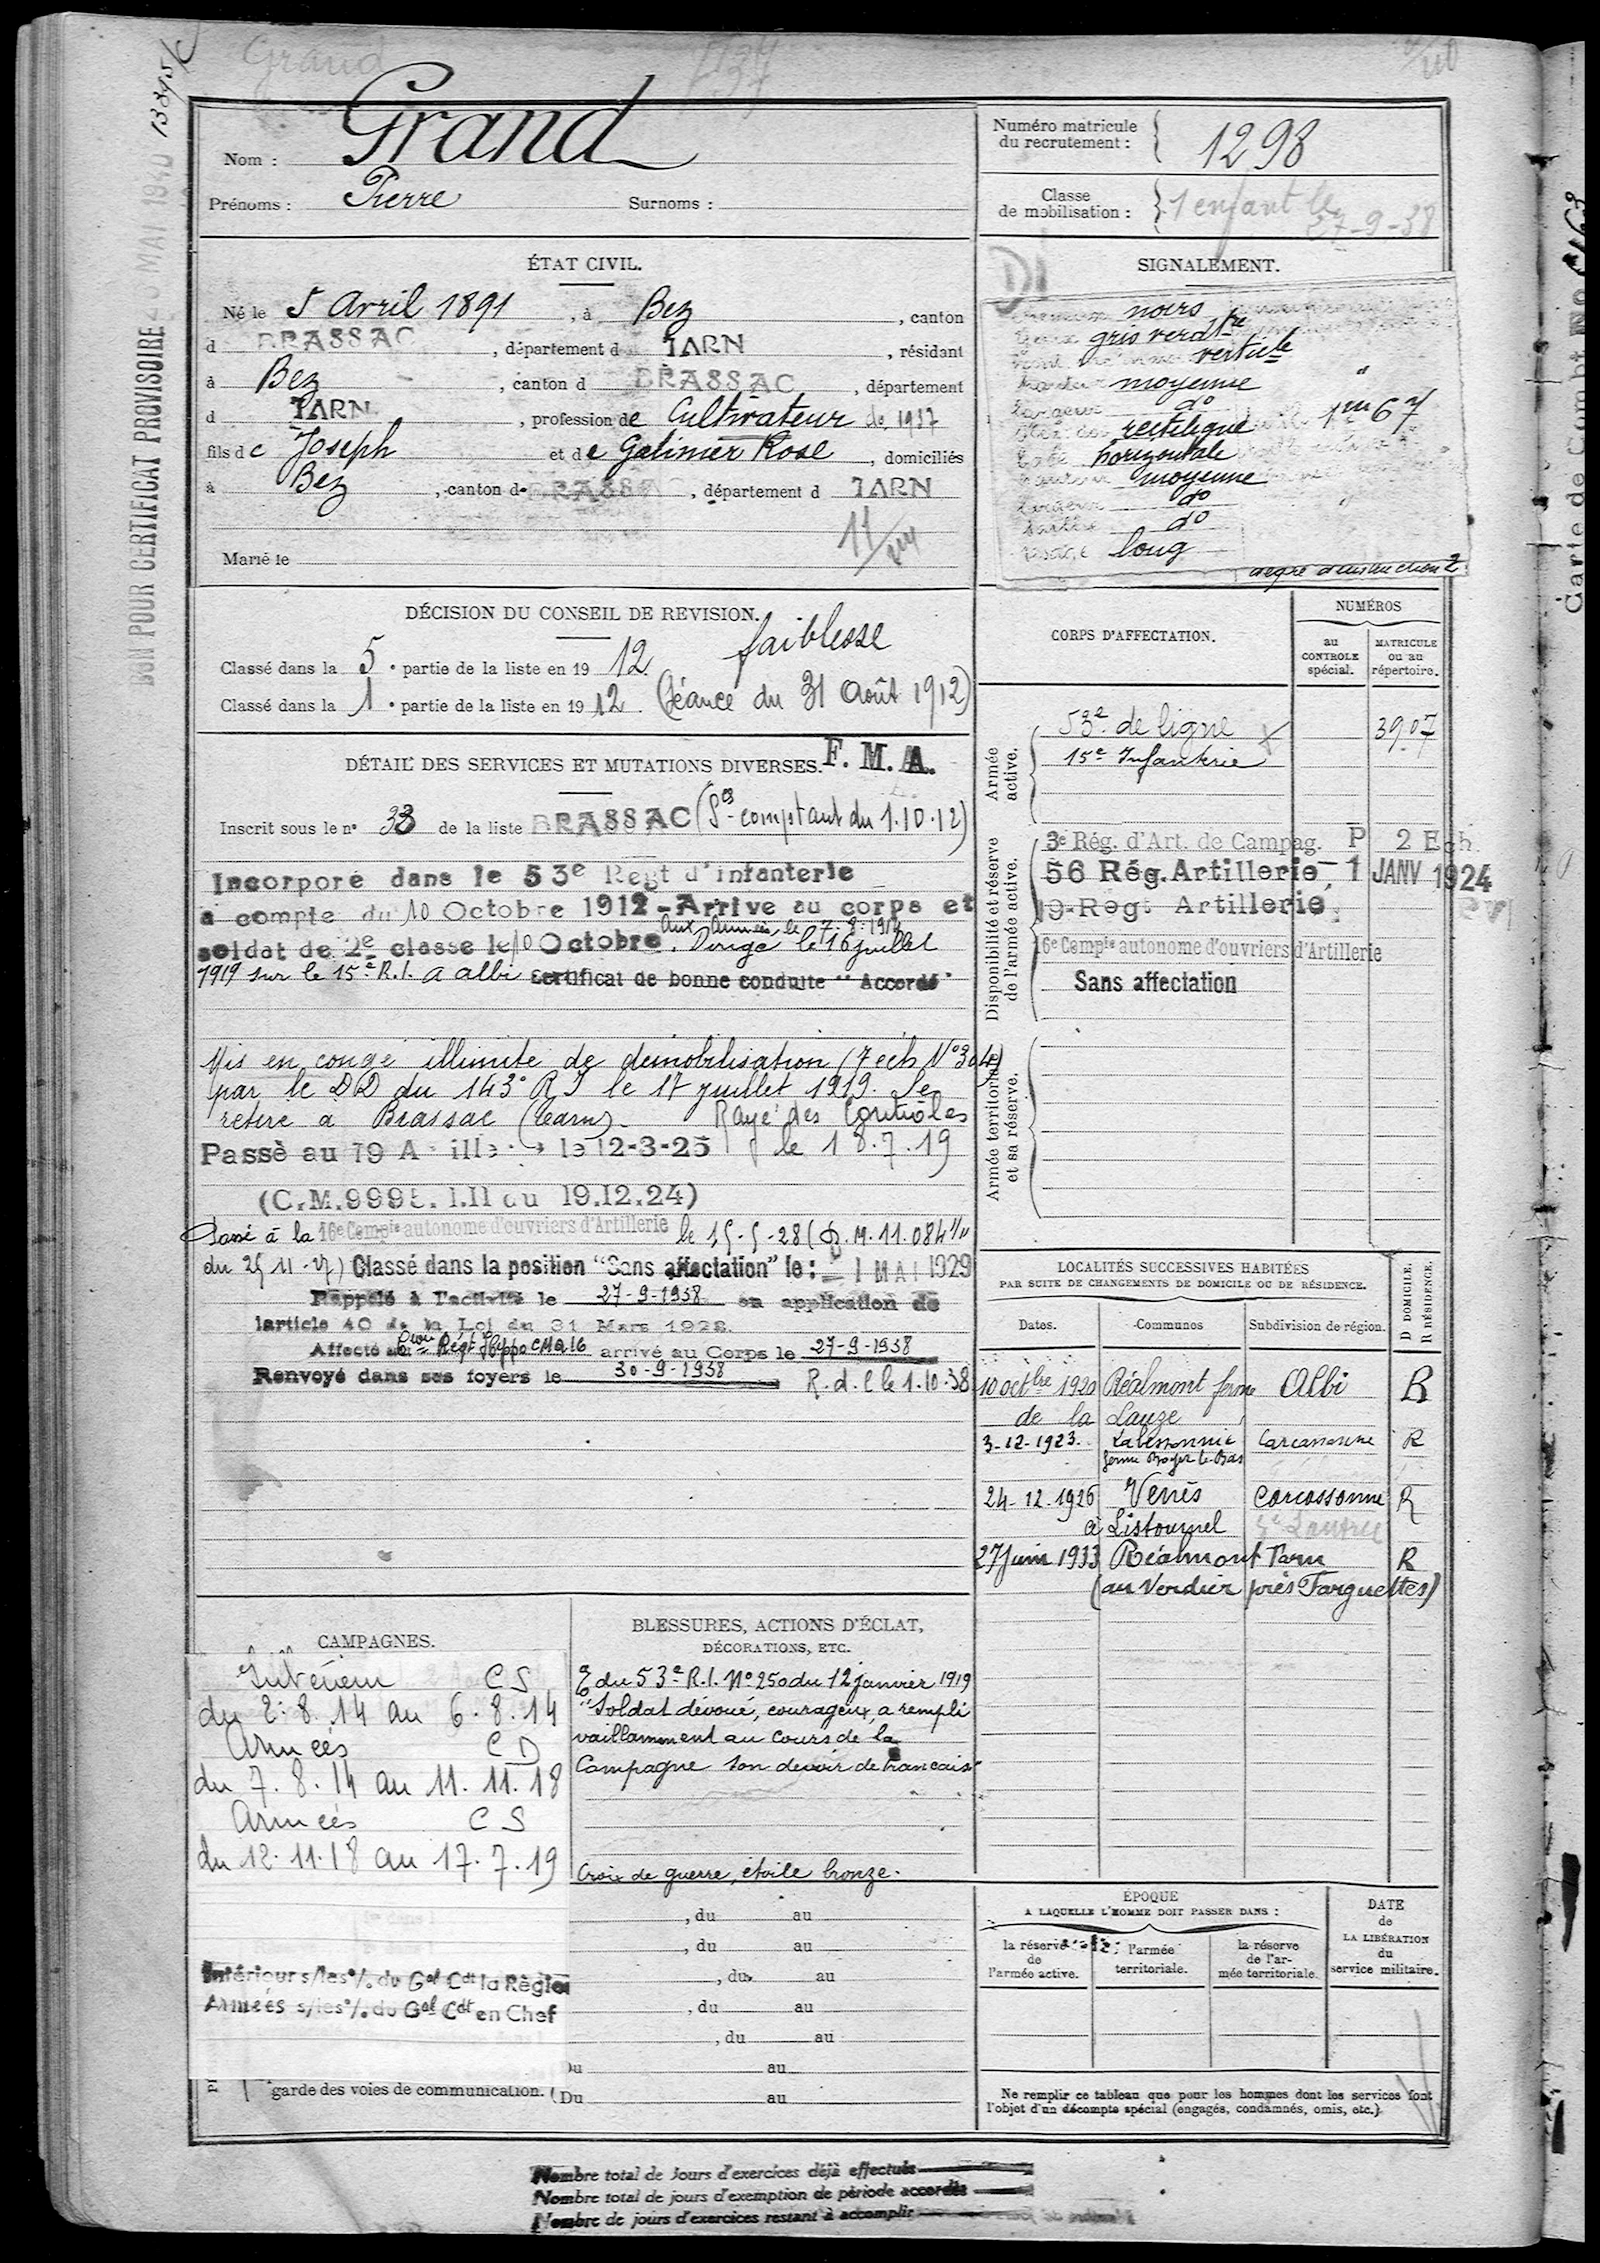 Grand
Nom : Grand
Prénoms : Pierre Surnoms :
Numéro matricule
du recrutement : 1298
Classe
de mobilisation : 1 enfant le
27-9-38
BON POUR CERTIFICAT PROVISOIRE MAI 1940
ÉTAT CIVIL.
Né le 5 Avril 1891, à Bez, canton
d BRASSAC, département d TARN, résidant
à Bez, canton d BRASSAC, département
d TARN, profession de Cultivateur de 1937
fils de Joseph et de Galinier Rose, domiciliés
à Bez, canton d BRASSAC, département d TARN
Marié le
SIGNALEMENT.
noirs
gris verdtre
verticle
moyenne
do
1m 67
rectiligne
horizontale
moyenne
do
do
long
degré d'instruction 2
DÉCISION DU CONSEIL DE REVISION.
faiblesse
Classé dans la 5e partie de la liste en 1912.
Classé dans la 1e partie de la liste en 1912. (Séance du 31 Août 1912)
DÉTAIL DES SERVICES ET MUTATIONS DIVERSES. F. M. A.
Inscrit sous le n° 33 de la liste BRASSAC (Ses comptant du 1.10.12)
Incorporé dans le 53e Régt d'infanterie
à compte du 10 Octobre 1912 - Arrivé au corps et
aux armées le 7-8-1914
soldat de 2e classe le 10 Octobre. Dirigé le 16 juillet
1919 sur le 15e R.I. à Albi Certificat de bonne conduite "Accordé"
Mis en congé illimité de démobilisation (7 éch N°304)
par le DD du 143e R I le 17 juillet 1919. Se
retire à Brassac (Tarn). Rayé des Contrôles
le 18.7.19
Passé au 19 A ille le 12-3-25
(C.M.9995. I.II du 19.12.24)
Passé à la 16e Compie autonome d'ouvriers d'Artillerie le 15-5-28 (D.M.11.084 1/11
du 25 11-27) Classé dans la position "Sans affectation" le : 1 MAI 1929
Rappelé à l'activité le 27-9-1938 en application de
l'article 40 de la Loi du 31 Mars 1928.
Affecté au Régt Hippo CMA16 arrivé au Corps le 27-9-1938
Renvoyé dans ses foyers le 30-9-1938 R.d.C le 1.10.38
CORPS D'AFFECTATION.
NUMÉROS
au
CONTROLE
spécial.
MATRICULE
ou au
répertoire.
Armée
active.
53e de ligne 3907
15e Infanterie
Disponibilité et réserve
de l'armée active.
3e Rég. d'Art. de Campag. P 2 Ech.
56 Rég. Artillerie - 1 JANV 1924
19 Régt Artillerie
16e Compie autonome d'ouvriers d'Artillerie
Sans affectation
Armée territoriale
et sa réserve.
LOCALITÉS SUCCESSIVES HABITÉES
PAR SUITE DE CHANGEMENTS DE DOMICILE OU DE RÉSIDENCE.
D DOMICILE.
R RÉSIDENCE.
Dates. Communes Subdivision de région.
10 octbre 1920 Réalmont ferme Albi R
de la Lauze
3-12-1923. Labessonnié Carcassonne R
ferme Roger le Bas
24-12-1926 Venès Carcassonne R
à Listournel
27 Juin 1933 Réalmont Tarn R
(au Verdier près Farguettes)
CAMPAGNES.
Intérieur C S
du 2.8.14 au 6.8.14
Armées C D
du 7.8.14 au 11.11.18
Armées C S
du 12.11.18 au 17.7.19
Intérieur s/les o/. du Gal Cdt la Région
Armées s/les o/. du Gal Cdt en Chef
garde des voies de communication.
BLESSURES, ACTIONS D'ÉCLAT,
DÉCORATIONS, ETC.
du 53e R.I. N° 250 du 12 janvier 1919
"Soldat dévoué, courageux, a rempli
vaillamment au cours de la
Campagne son devoir de francais"
Croix de guerre, étoile bronze.
, du au
, du au
, du au
, du au
, du au
Du au
Du au
ÉPOQUE
A LAQUELLE L'HOMME DOIT PASSER DANS :
la réserve
de
l'armée active.
l'armée
territoriale.
la réserve
de l'ar-
mée territoriale.
DATE
de
LA LIBÉRATION
du
service militaire.
Ne remplir ce tableau que pour les hommes dont les services font
l'objet d'un décompte spécial (engagés, condamnés, omis, etc.).
Nombre total de jours d'exercices déjà effectués
Nombre total de jours d'exemption de période accordés
Nombre de jours d'exercices restant à accomplir
Carte de Combt No